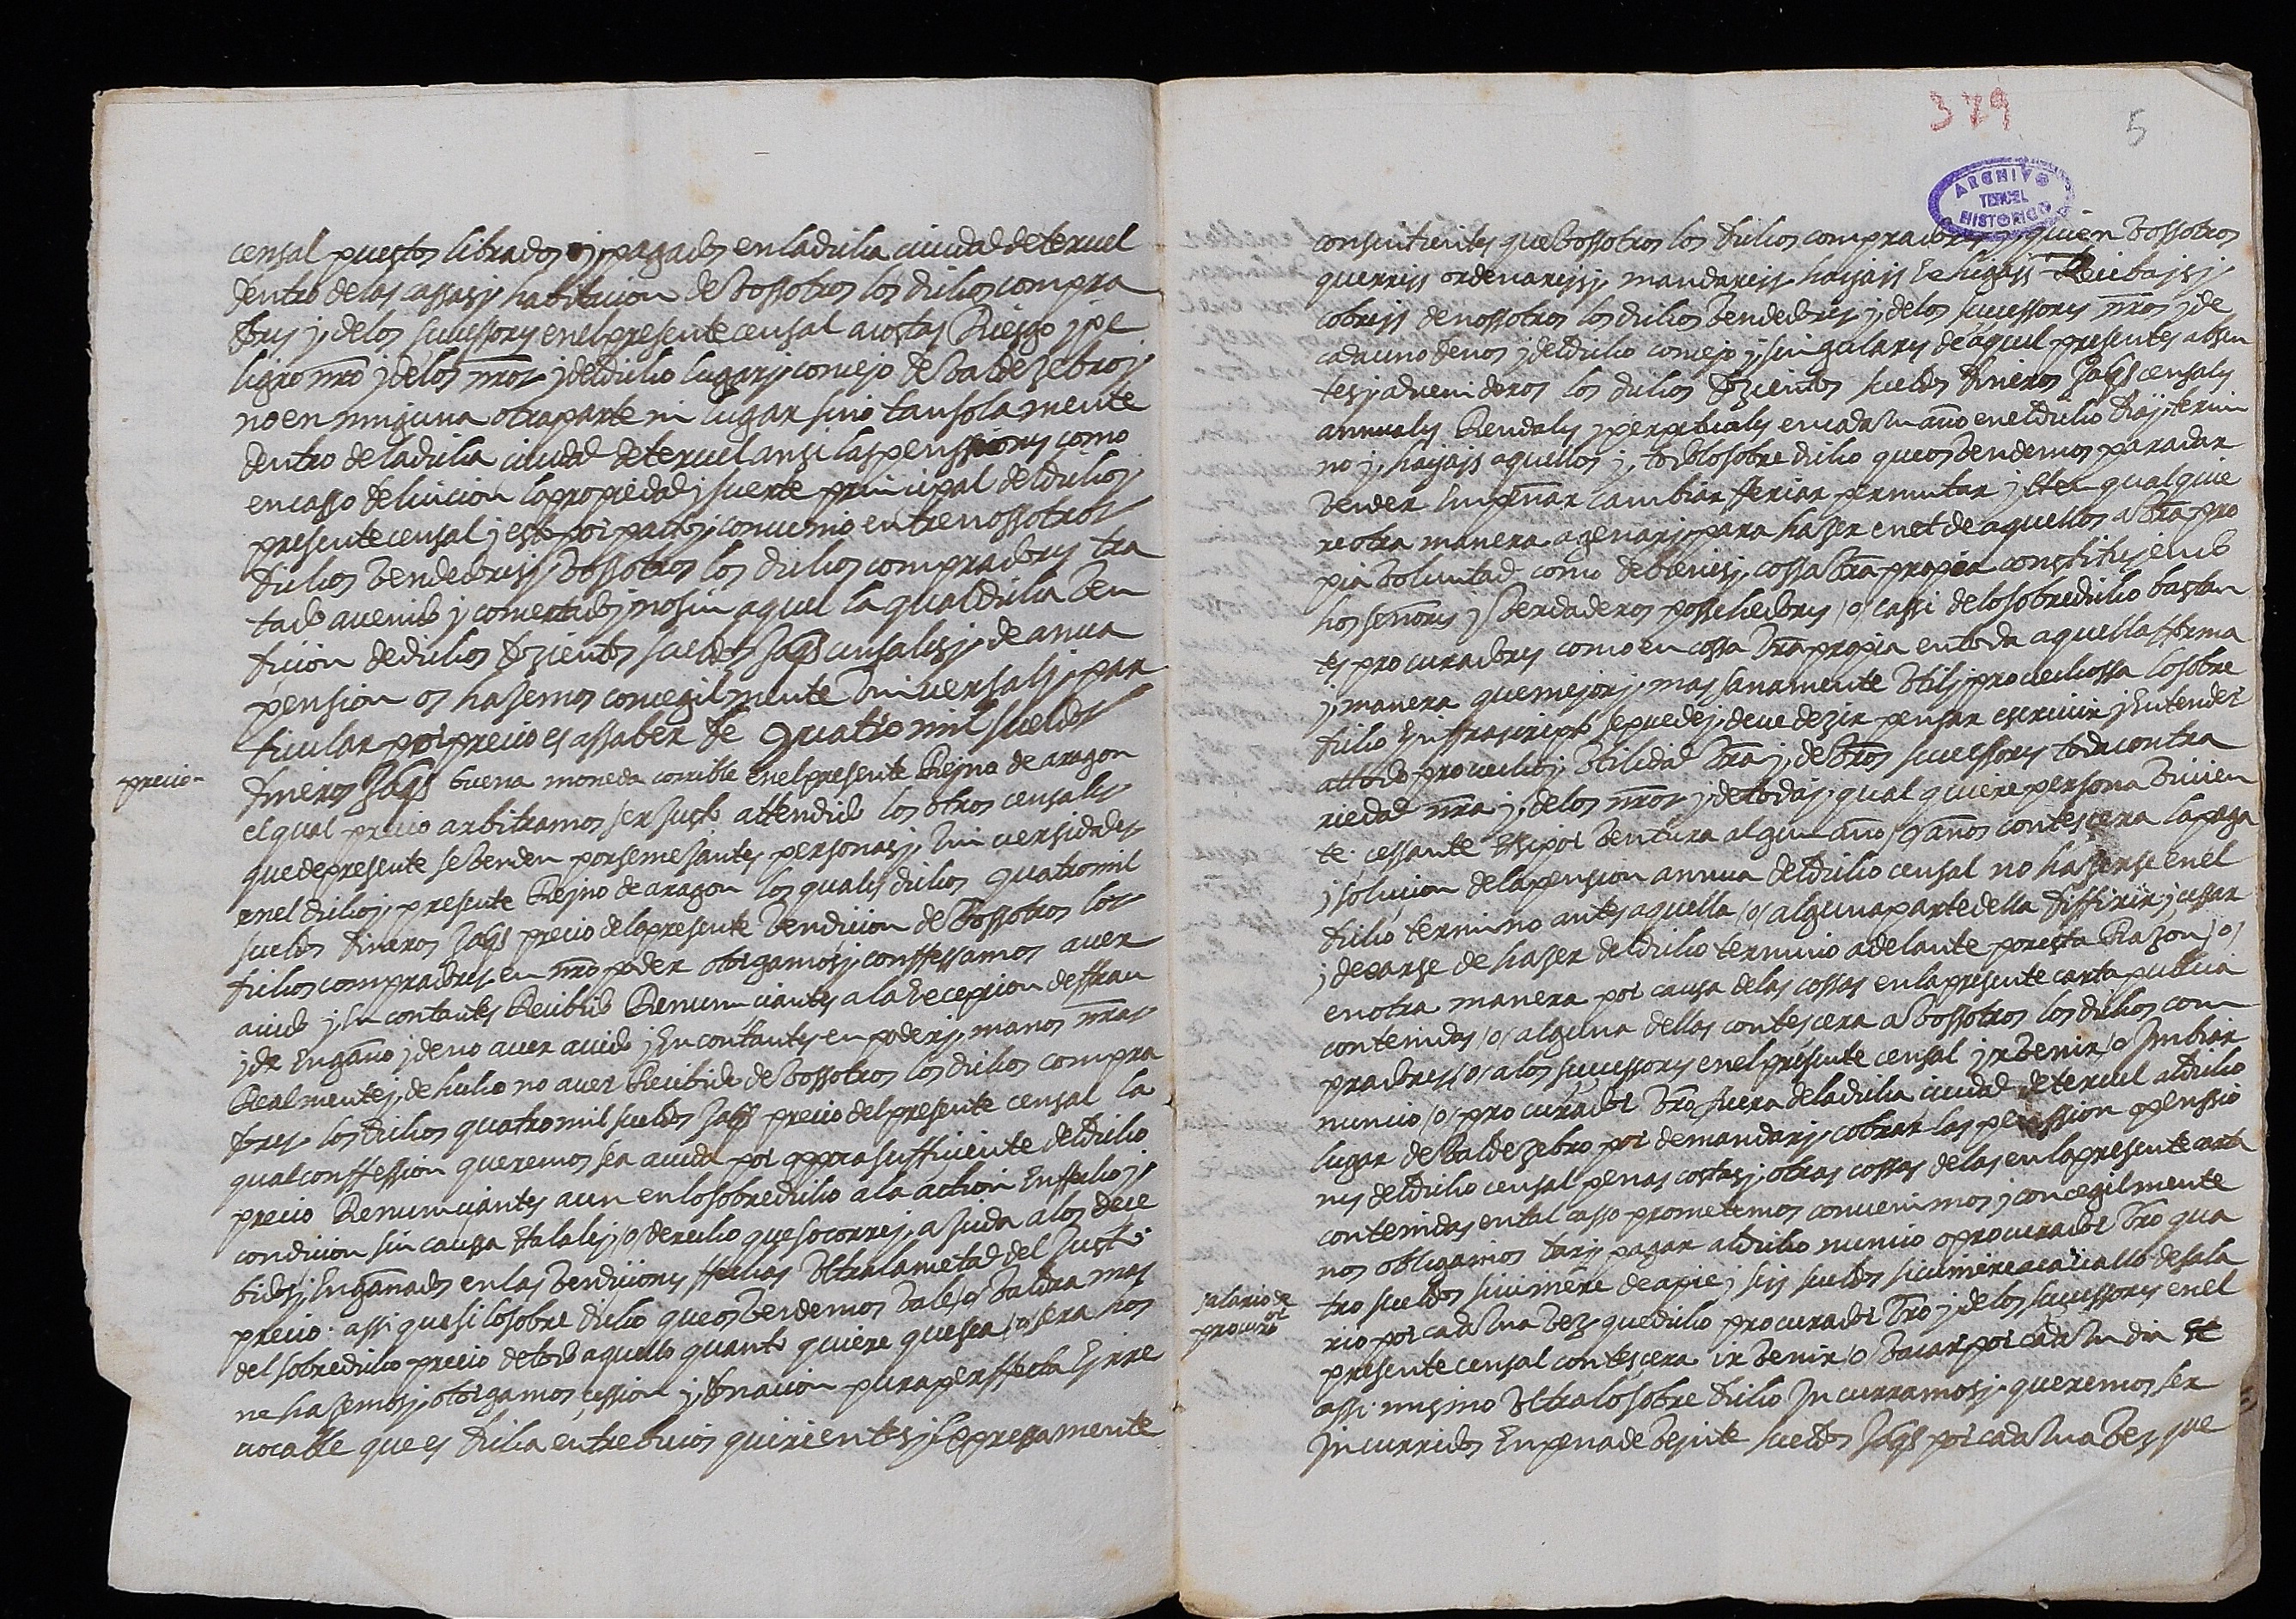 censal puestos librados y pagados en la dicha ciudad de teruel
dentro de las cassas y habitacion de vossotros los dichos compra
dores y de los successores en el presente censal a costas Riesgo y pe
ligro nro y de los nros y del dicho lugar y concejo de valdezebro y
no en ninguna otra parte ni lugar sino tan sola mente
dentro de la dicha ciudad de teruel ansi las penssiones como
en casso de luicion la propiedad y suerte principal del dicho y
presente censal y esto por pacto y convenio entre nossotros
dichos vendedores y vossotros los dichos compradores tra
tado avenido y concertado y no sin aquel la qual dicha ven
dicion de dichos dozientos sueldos Jaqs censales y de anua
pension os hazemos concegilmente vniversal y par
ticular por precio es assaber de quatro mil sueldos
precio-
dineros Jaqs buena moneda corrible en el presente Reyno de aragon
el qual precio arbitramos ser justo attendido los otros censales
que de presente se venden por semejantes personas y vniversidades
en el dicho y presente Reyno de aragon los quales dichos quatro mil
sueldos dineros Jaqs precio de la presente vendicion de vossotros los
dichos compradores en nro poder otorgamos y conffessamos aver
avido y en contantes Recibido Renunciantes a la Excepcion de ffrau
y de Engaño y de no aver avido y En contantes en poder y manos nras
Realmente y de hecho no aver Recibido de vossotros los dichos compra
dores los dichos quatro mil sueldos Jaqs precio del presente censal la
qual conffession queremos sea avida por appoca sufficiente del dicho
precio Renunciantes aun en lo sobredicho a la action En ffecho y
condicion sin caussa Et a la ley /o/ derecho que socorre y ajuda a los dece
bidos y Engañados en las vendiciones ffechas vltra la metad del justo
precio. assi que si lo sobre dicho que os vendemos vale /o/ valdra mas
del sobredicho precio de todo aquello quanto quiere que sea /o/ sera vos
ne hazemos y otorgamos cession y donacion pura perffecta E irre
vocable que es dicha entre bivos quirientes y Expressamente
379
5
ARCHIVO
TERUEL
HISTORICO
consintientes que vossotros los dichos compradores y quien vossotros
querreys ordenareys y mandareys hayays E hagays Recibays y
cobreys de nossotros los dichos vendedores y de los successores nros y de
cada uno de nos y del dicho concejo y singulares de aquel presentes absen
tes y advenideros los dichos dozientos sueldos dineros Jaqs censales
annuales Rendales y perpetuales en cada vn año en el dicho dia y termi
no y hayays aquellos y todo lo sobre dicho que os vendemos para dar
vender Empeñar cambiar fferiar permutar y Et en qualquie
re otra manera agenar y para hazer en et de aquellos a vra pro
pia voluntad como de bienes y cossa vra propia constituyendo
hos señores y verdaderos possehedores /o/ cassi de lo sobredicho bastan
tes procuradores como en cossa vra propia en toda aquella fforma
y manera que mejor y mas sanamente vtil y provechossa lo sobre
dicho E infrascripto se puede y deve dezir pensar escrivir y Entender
a todo provecho y vtilidad vra y de vros successores toda contra
riedad nra y de los nros y de todas y qual quiere persona vivien
te. cessante Et si por ventura algun año /o/ años contescera la paga
y solucion de la pension annua del dicho censal no hazerse en el
dicho termino antes aquella /o/ alguna parte della diffirir y cessar
y dexarse de hazer del dicho termino adelante por esta Razon /o/
en otra manera por causa de las cossas en la presente carta publica
contenidas /o/ alguna dellas contescera a vossotros los dichos com
pradores /o/ a los successores en el presente censal yr venir /o/ Imbiar
nuncio /o/ procurador vro fuera de la dicha ciudad de teruel al dicho
lugar de valdezebro por demandar y cobrar las penssion o penssio
nes del dicho censal penas costas y otras cossas de las en la presente carta
contenidas en tal casso prometemos convenimos y concegilmente
nos obligamos dar y pagar al dicho nuncio o procurador vro qua
tro sueldos si viniere de a pie y seys sueldos si viniere a cavallo de sala
salario de
procuror
rio por cada vna vez que dicho procurador vro y de los successores en el
presente censal contescera yr venir /o/ vacar por cada vn dia Et
assi mismo vltra lo sobre dicho Incurramos y queremos ser
Incurridos En pena de veynte sueldos Jaqs por cada vna vez que